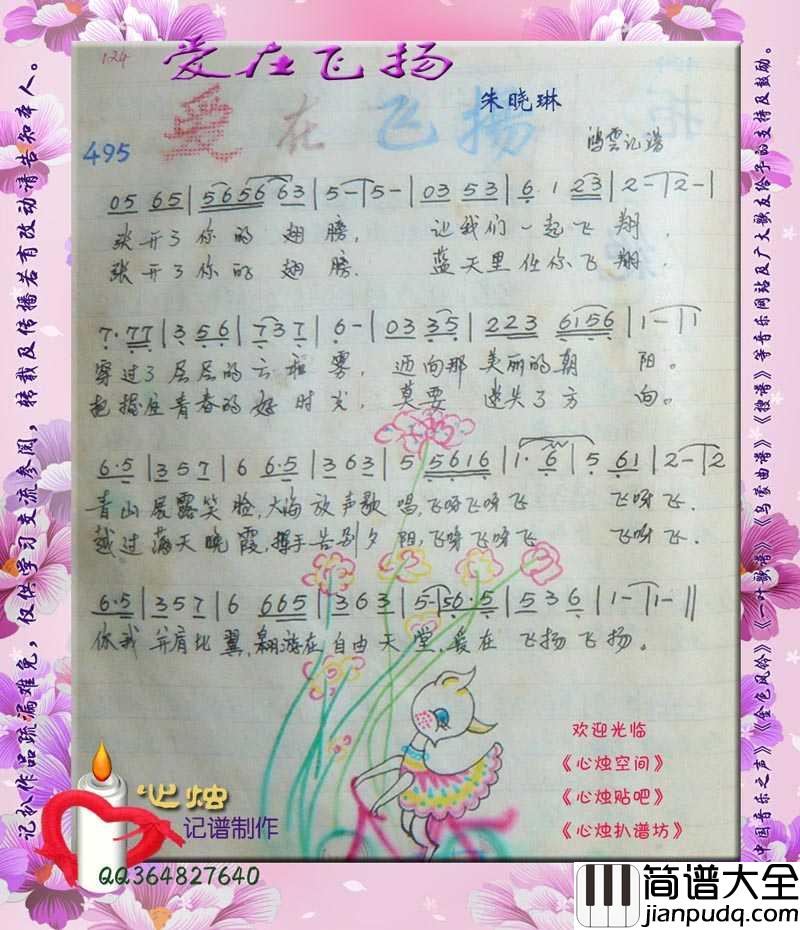 124
爱在飞扬
爱在飞扬
朱晓琳
495
鸿雲记谱
05 65 | 5656 63 | 5-|5- | 03 53 | 6 1 23 | 2-|2-|
张开了你的翅膀, 让我们一起飞翔,
张开了你的翅膀. 蓝天里任你飞翔.
7·77 | 3 56 | 737 | 6- | 03 35 | 223 6156 | 1-|1
穿过了层层的云和雾, 迈向那美丽的朝阳。
把握住青春的好时光, 莫要迷失了方向。
6·5 | 357 | 6 6·5 | 363 | 5 5616 | 1·6 | 5 61 | 2-|2
青山展露笑脸,大海放声歌唱,飞呀飞呀飞 飞呀飞.
越过满天晚霞,挥手告别夕阳,飞呀飞呀飞 飞呀飞.
6·5 | 357 | 6 665 | 363 | 5-|56·5 | 536 | 1-|1-||
你我并肩比翼,翱游在自由天堂,爱在飞扬飞扬。
欢迎光临
《心烛空间》
《心烛贴吧》
《心烛扒谱坊》
心烛
记谱制作
QQ364827640
记扒作品疏漏难免,仅供学习交流参阅,转载及传播若有改动请告知本人。
《中国音乐之声》《金色风铃》《一叶歌谱》《乌蒙曲谱》《搜谱》等音乐网站及广大歌友给予的支持及鼓励。
简谱大全
jianpudq.com